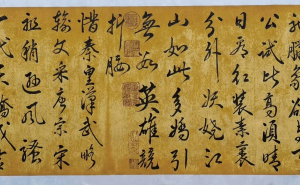 公試比高須晴
日看紅裝素裹
分外妖嬈江
山如此多嬌引
無數英雄競
折腰
惜秦皇漢武略
輸文采唐宗宋
祖稍遜風騷
一代天驕成吉